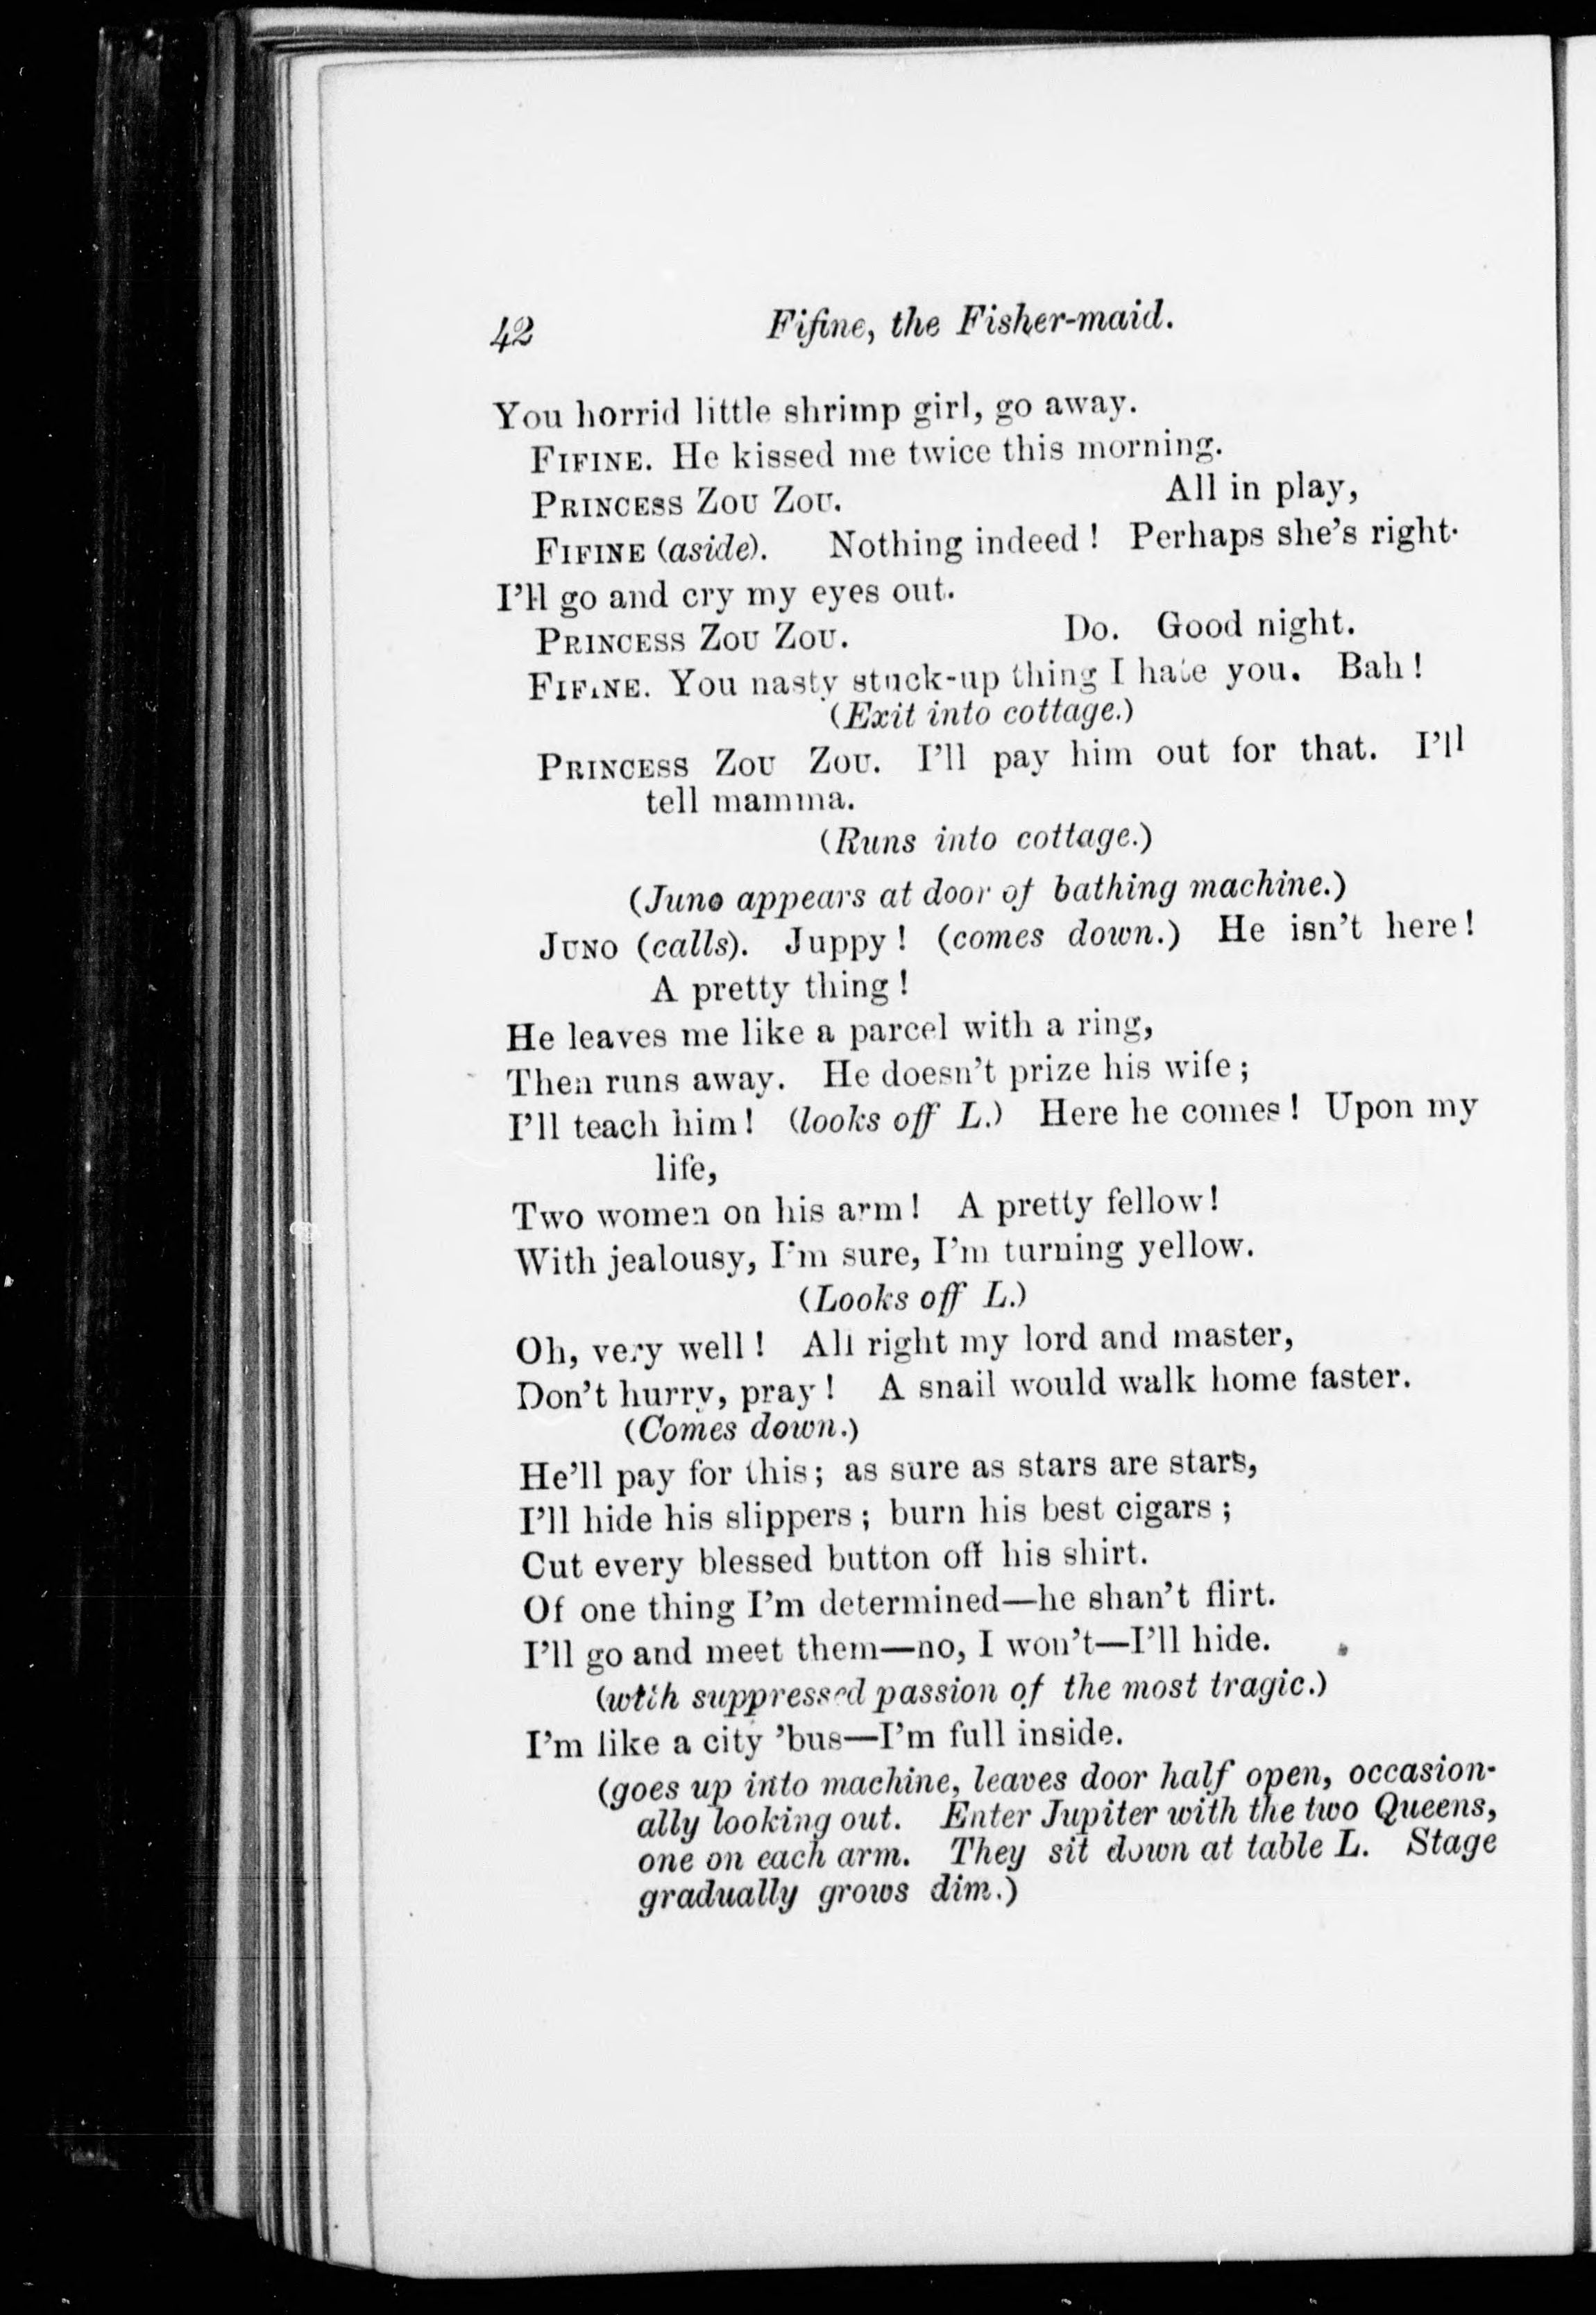 42 Fifine, the Fisher-maid.
You horrid little shrimp girl, go away.
FIFINE. He kissed me twice this morning.
PRINCESS ZOU ZOU. All in play,
FIFINE (aside). Nothing indeed! Perhaps she's right.
I'll go and cry my eyes out.
PRINCESS ZOU ZOU. Do. Good night.
FIFINE. You nasty stuck-up thing I hate you. Bah!
(Exit into cottage.)
PRINCESS ZOU ZOU. I'll pay him out for that. I'll
tell mamma.
(Runs into cottage.)
(Juno appears at door of bathing machine.)
JUNO (calls). Juppy! (comes down.) He isn't here!
A pretty thing!
He leaves me like a parcel with a ring,
Then runs away. He doesn't prize his wife;
I'll teach him! (looks off L.) Here he comes! Upon my
life,
Two women on his arm! A pretty fellow!
With jealousy, I'm sure, I'm turning yellow.
(Looks off L.)
Oh, very well! All right my lord and master,
Don't hurry, pray! A snail would walk home faster.
(Comes down.)
He'll pay for this; as sure as stars are stars,
I'll hide his slippers; burn his best cigars;
Cut every blessed button off his shirt.
Of one thing I'm determined—he shan't flirt.
I'll go and meet them—no, I won't—I'll hide.
(wtih suppressed passion of the most tragic.)
I'm like a city 'bus—I'm full inside.
(goes up into machine, leaves door half open, occasion-
ally looking out. Enter Jupiter with the two Queens,
one on each arm. They sit down at table L. Stage
gradually grows dim.)